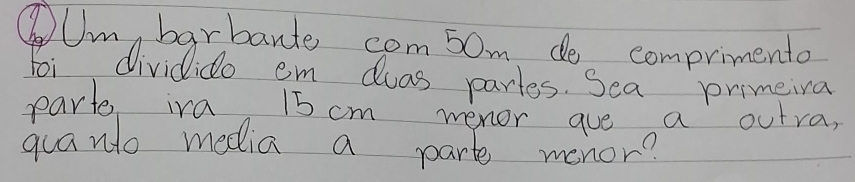 2) Um barbante com 50m de comprimento
foi dividido em duas partes. Sea primeira
parte ira 15 cm menor que a outra,
quanto media a parte menor?